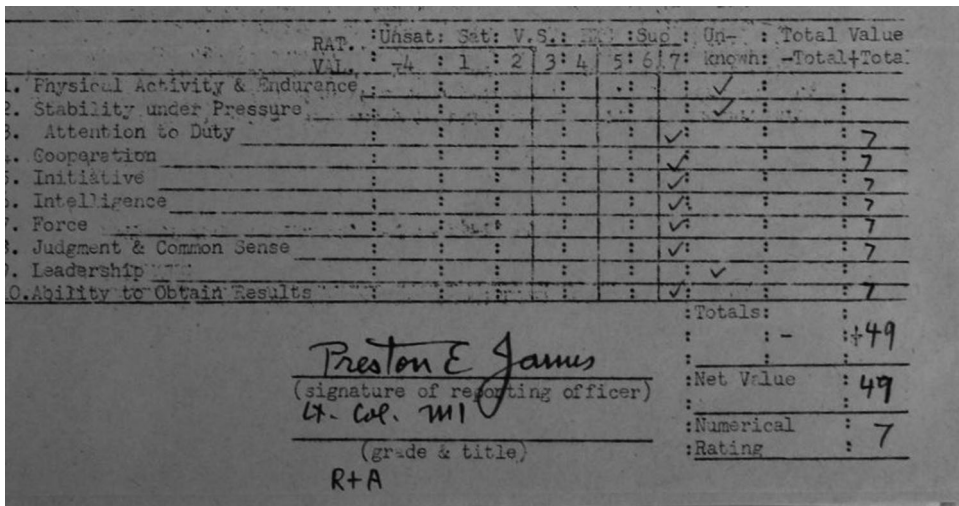 RAT. :Unsat: Sat: V.S.: :Sup : Un- : Total Value
VAL. : -4 : 1 : 2 3: 4 5: 6 7: known: -Total+Total
1. Physical Activity & Endurance ✓
2. Stability under Pressure ✓
3. Attention to Duty ✓ 7
4. Cooperation ✓ 7
5. Initiative ✓ 7
6. Intelligence ✓ 7
7. Force ✓ 7
8. Judgment & Common Sense ✓ 7
9. Leadership ✓
10.Ability to Obtain Results ✓ 7
:Totals:
: - :+49
Preston E James
(signature of reporting officer)
:Net Value : 49
Lt. Col. MI
:Numerical : 7
(grade & title)
:Rating :
R+A